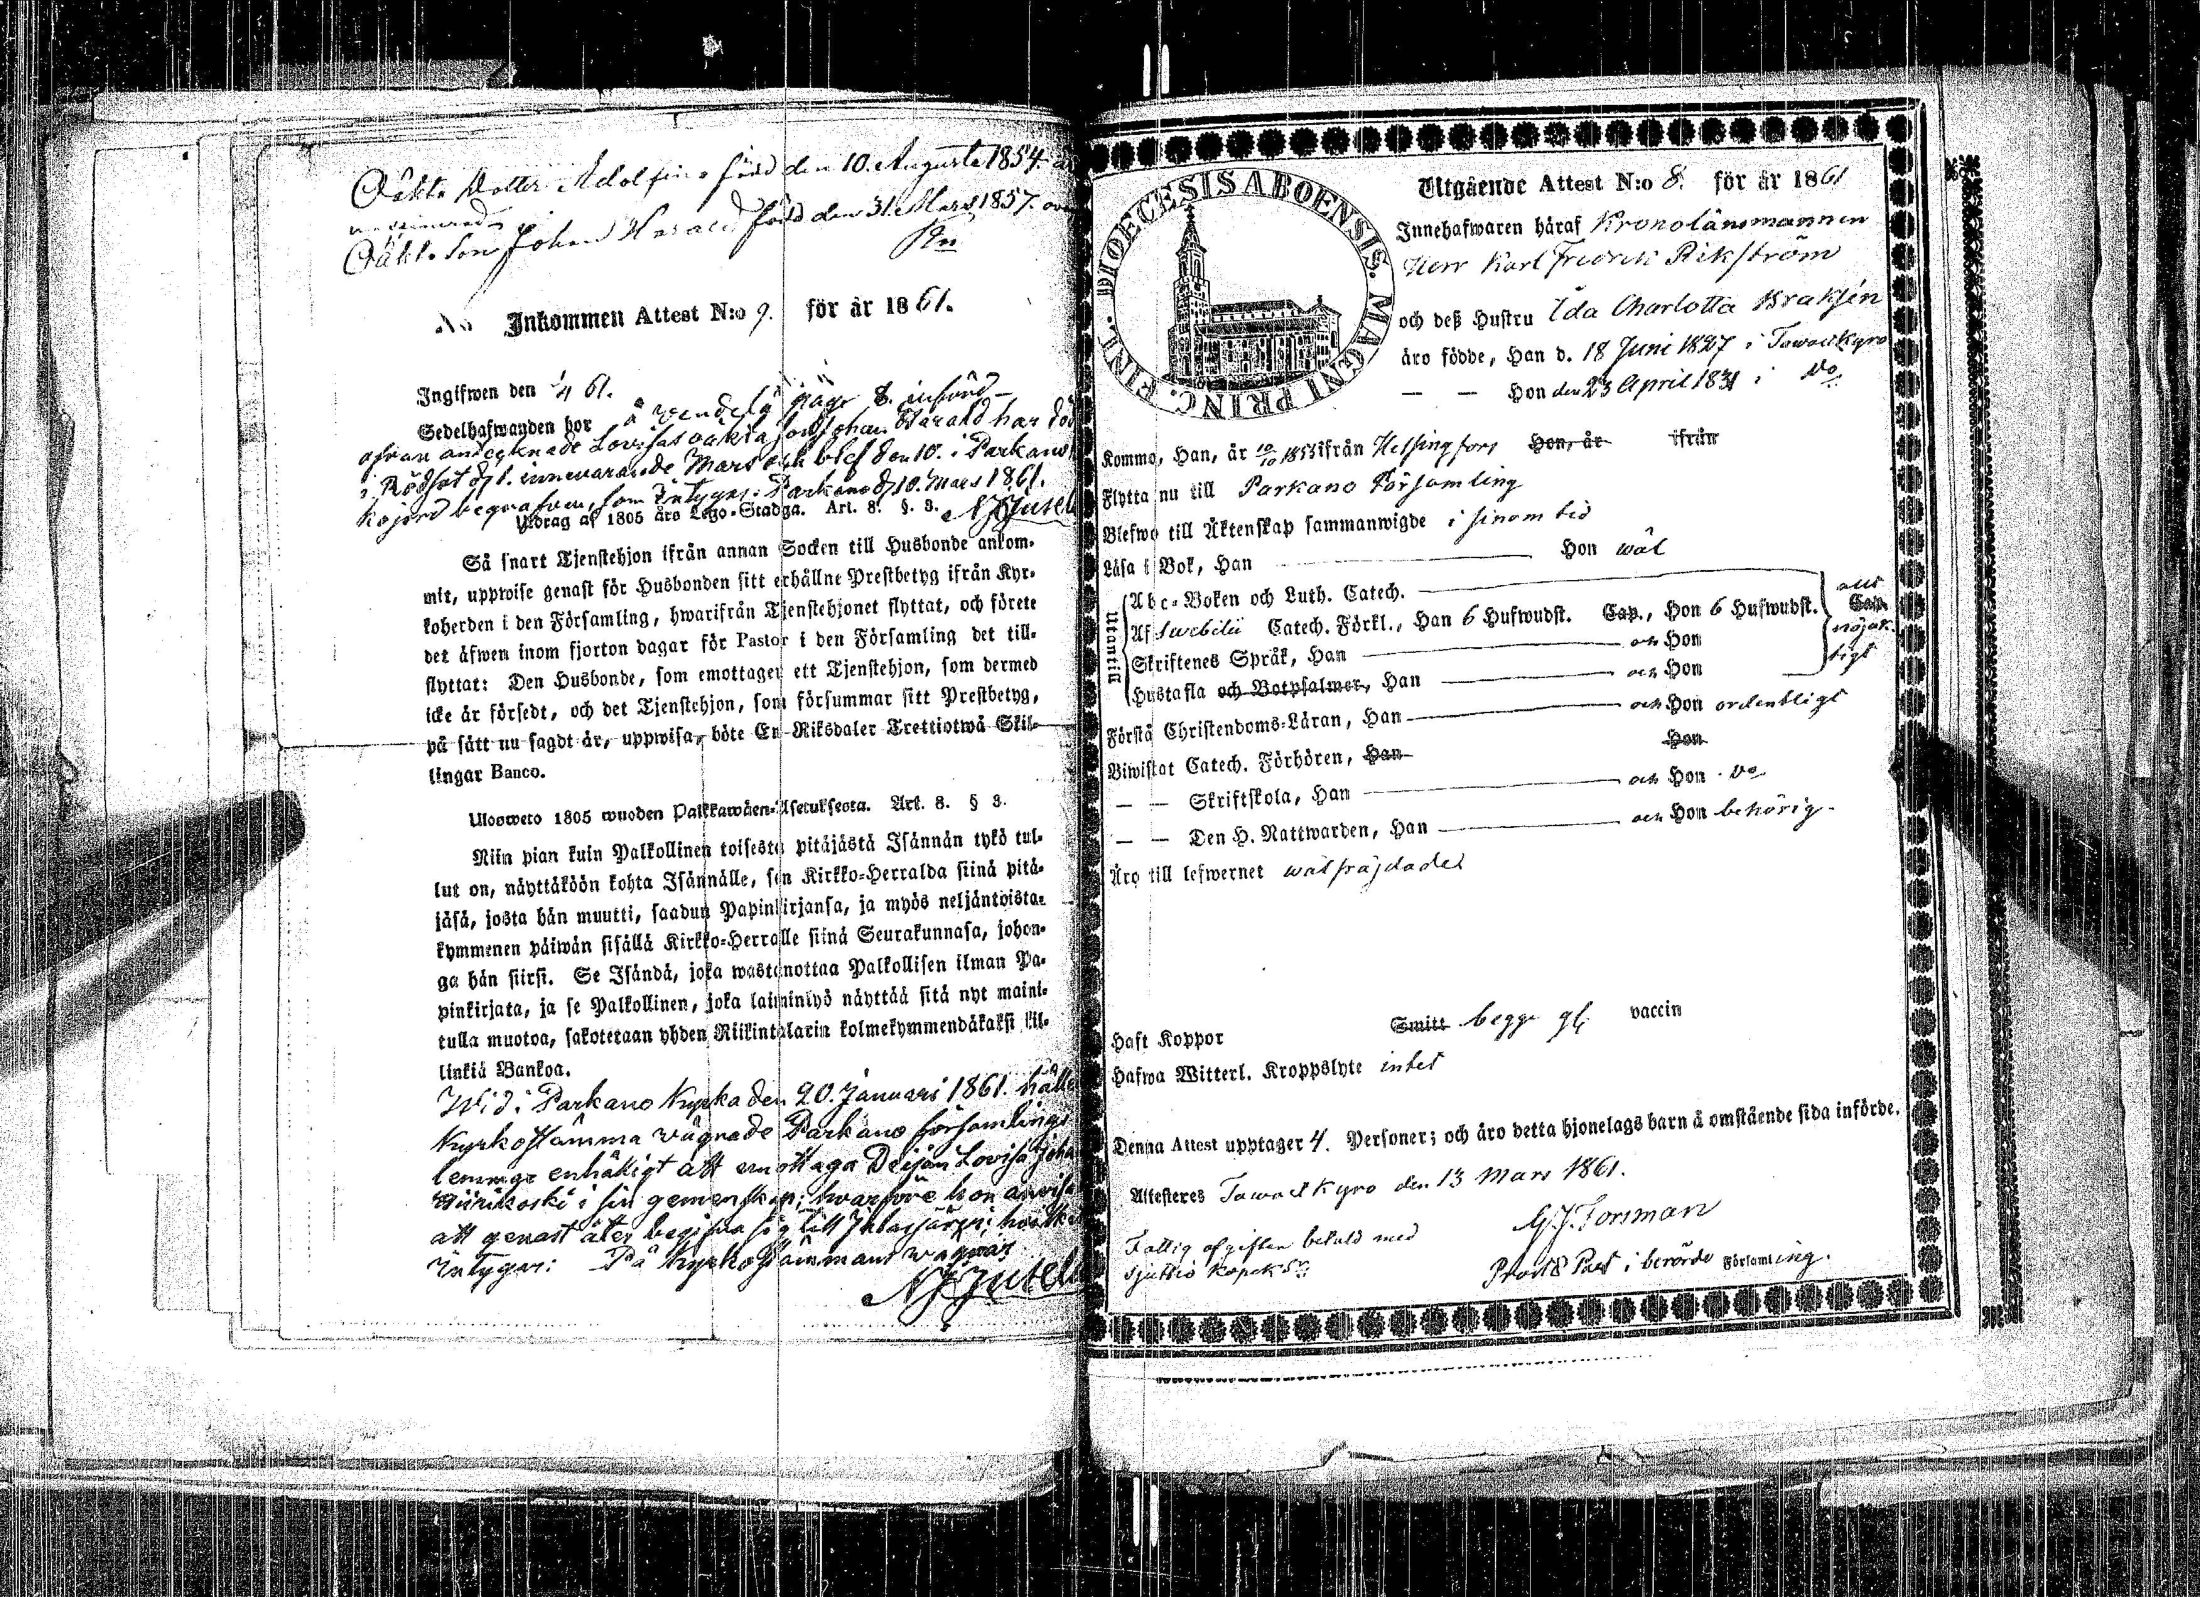 Oäkta Dotter Adolfina född den 10. Augusti 1854. är
vaccinerad
Oäkta Son Johan Harald född den 31. Mars 1857. ovac
Inkommen Attest N:o 9. för år 1861.
Ingifwen den 1/4 61.
Sedelhafwanden bor
å vendela säge 8. införd
ofvan antecknade Lovisas oäkta Son Johan Harald har död
i Rödsot d. 1. innevarande Mars och blef den 10. i Parkano
kojord begrafven, som intygar: Parkano d. 10. Mars 1861.
Utdrag af 1805 års Lego-Stadga. Art. 8. §. 3.
Så snart Tjenstehjon ifrån annan Socken till Husbonde ankom-
mit, uppwise genast för Husbonden sitt erhållne Prestbetyg ifrån Kyr-
koherden i den Församling, hwarifrån Tjenstehjonet flyttat, och förete
det äfwen inom fjorton dagar för Pastor i den Församling det till-
flyttat: Den Husbonde, som emottager ett Tjenstehjon, som dermed
icke är försedt, och det Tjenstehjon, som försummar sitt Prestbetyg,
på sätt nu sagdt är, uppwisa, böte En Riksdaler Trettiotwå Skil-
lingar Banco.
Ulosweto 1805 wuoden Palkkawäen-Asetuksesta. Art. 8. § 3.
Niin pian kuin Palkollinen toisesta pitäjästä Isännän tykö tul-
lut on, näyttäköön kohta Isännälle, sen Kirkko-Herralda siinä pitä-
jäsä, josta hän muutti, saadun Papinkirjansa, ja myös neljäntoista-
kymmenen päiwän sisällä Kirkko-Herralle siinä Seurakunnasa, johon-
ga hän siirsi. Se Isändä, joka wastanottaa Palkollisen ilman Pa-
pinkirjata, ja se Palkollinen, joka laiminlyö näyttää sitä nyt maini-
tulla muotoa, sakotetaan yhden Riikintalarin kolmekymmendäkaksi kil-
linkiä Bankoa.
Wid i Parkano Kyrka den 20. Januari 1861. hålle
Kyrkostämma vägrade Parkano församlings
lemmar enhäligt att emottaga Pejan Lovisa Joha
i sin gemenskap; hvarföre hon anvisa
att genast åter begifva sig till Jalasjärvi; hvilke
intygar: På Kyrkostämmans vägnar
DIOECESIS ABOENSIS. MAGNI PRINC. FINL.
Utgående Attest N:o 8. för år 1861
Innehafwaren häraf Kronolänsmannen
Herr Karl Fredrik Rikström
och deß Hustru Ida Charlotta Braksén
äro födde, Han d. 18 Juni 1827 i Tawastkyro
— — Hon den 23 April 1831 i do
Komme, Han, år 10/10 1855 ifrån Helsingfors Hon, år ifrån
Flytta nu till Parkano Församling
Blefwo till Äktenskap sammanwigde i sinom tid
Läsa i Bok, Han Hon wäl
Utantill
Abc-Boken och Luth. Catech.
Af Swebilii Catech. Förkl., Han 6 Hufwudst. Cap., Hon 6 Hufwudst. Cap.
Skriftenes Språk, Han och Hon
Hustafla och Botpsalmer, Han och Hon
allt
nöjak-
tigt
Förstå Christendoms-Läran, Han och Hon ordentligt
Biwistat Catech. Förhören, Han Hon
— — Skriftskola, Han och Hon do
— — Den H. Nattwarden, Han och Hon behörig.
Äro till lefwernet wälfräjdade
Haft Koppor Smitt begge gt. vaccin
Hafwa Witterl. Kroppslyte intet
Denna Attest upptager 4. Personer; och äro detta hjonelags barn å omstående sida införde.
Attesteres Tawastkyro den 13 Mars 1861.
G. J. Forsman
Fattig afgiften betald med
sjuttio kopek Sr.
Prost & Past i berörde Församling.